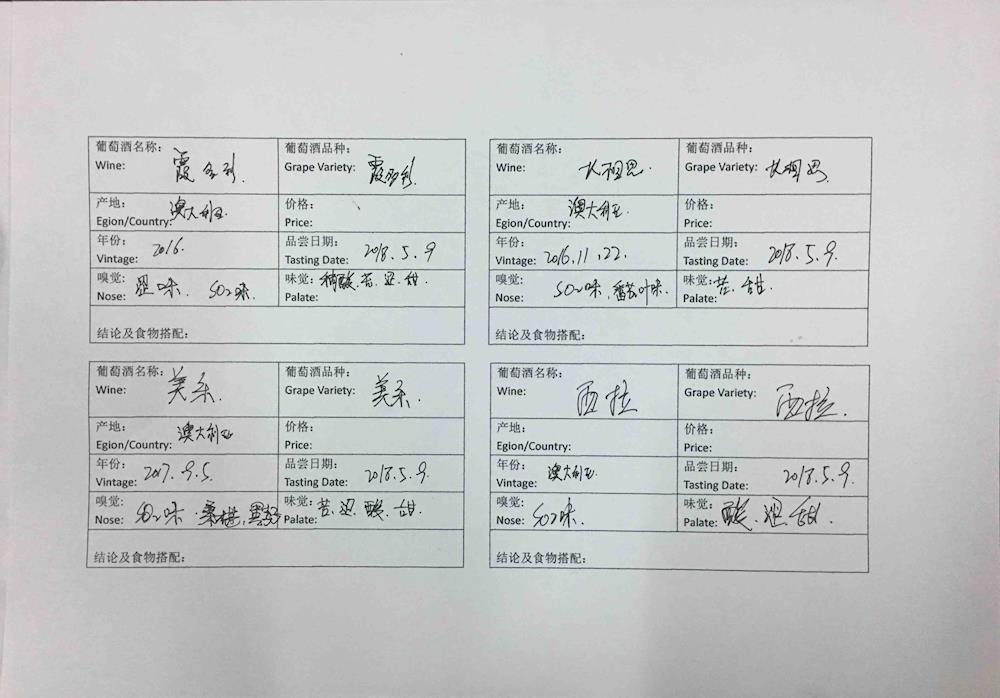 葡萄酒名称: 霞多利. 葡萄酒品种:
Wine: Grape Variety: 霞多利.
产地: 澳大利亚. 价格:
Egion/Country: Price:
年份: 2016. 品尝日期: 2018.5.9
Vintage: Tasting Date:
嗅觉: 味. SO2味. 味觉: 酸.苦.涩.甜.
Nose: Palate:
结论及食物搭配:
葡萄酒名称: 长相思. 葡萄酒品种:
Wine: Grape Variety: 长相思.
产地: 澳大利亚. 价格:
Egion/Country: Price:
年份: 2016.11.22. 品尝日期: 2018.5.9.
Vintage: Tasting Date:
嗅觉: SO2味, 番茄叶味. 味觉: 苦. 甜.
Nose: Palate:
结论及食物搭配:
葡萄酒名称: 美乐. 葡萄酒品种:
Wine: Grape Variety: 美乐.
产地: 澳大利亚 价格:
Egion/Country: Price:
年份: 2017.9.5. 品尝日期: 2018.5.9.
Vintage: Tasting Date:
嗅觉: SO2味. 桑椹, 味觉: 苦.涩.酸.甜.
Nose: Palate:
结论及食物搭配:
葡萄酒名称: 西拉 葡萄酒品种:
Wine: Grape Variety: 西拉.
产地: 价格:
Egion/Country: Price:
年份: 澳大利亚. 品尝日期: 2018.5.9.
Vintage: Tasting Date:
嗅觉: SO2味. 味觉: 酸.涩.甜.
Nose: Palate:
结论及食物搭配: